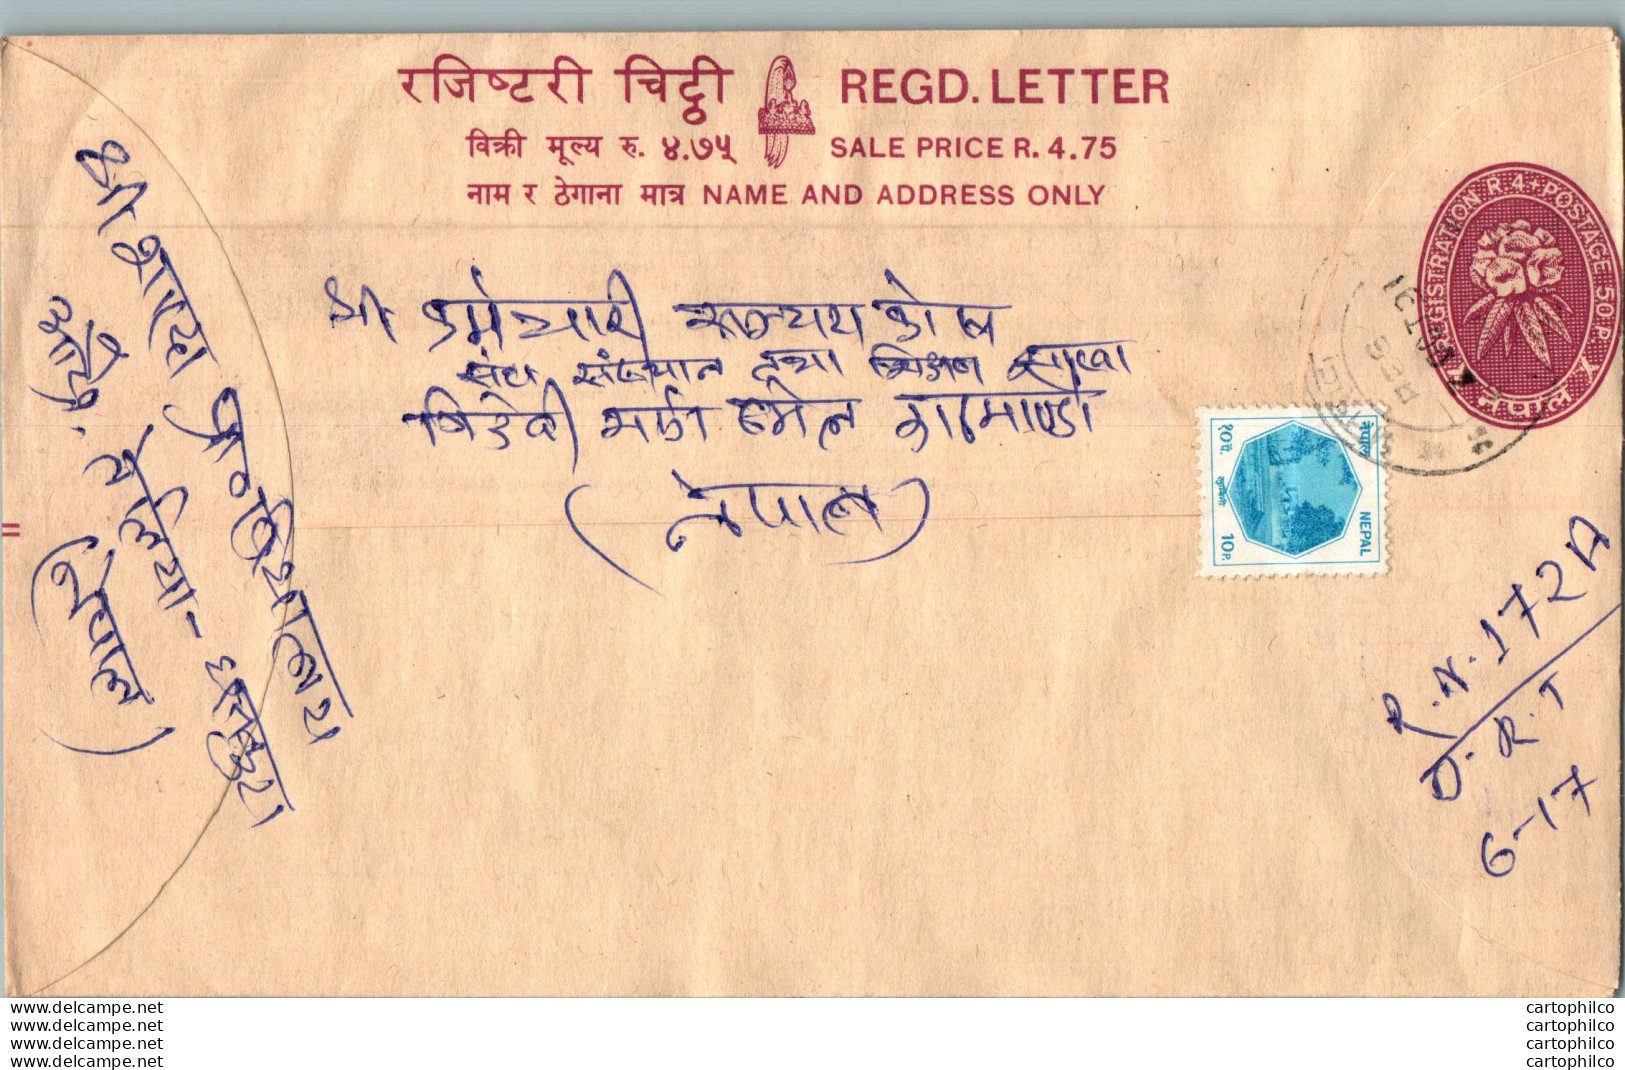 रजिष्टरी चिट्ठी REGD. LETTER
विक्री मूल्य रु. ४.७५ SALE PRICE R. 4.75
नाम र ठेगाना मात्र NAME AND ADDRESS ONLY
REGISTRATION R.4+POSTAGE 50P.
नेपाल
श्री कर्मचारी सञ्चय कोष
संघ संस्थान तथा शिक्षण शाखा
त्रिदेवी मार्ग ठमेल काठमाण्डौ
(नेपाल)
नेपाल
१०पै.
NEPAL
10P.
श्री शारदा प्रा. विद्यालय
(नेपाल)
R.N. 172A
D.R.T
6-17
www.delcampe.net
www.delcampe.net
www.delcampe.net
www.delcampe.net
cartophilco
cartophilco
cartophilco
cartophilco